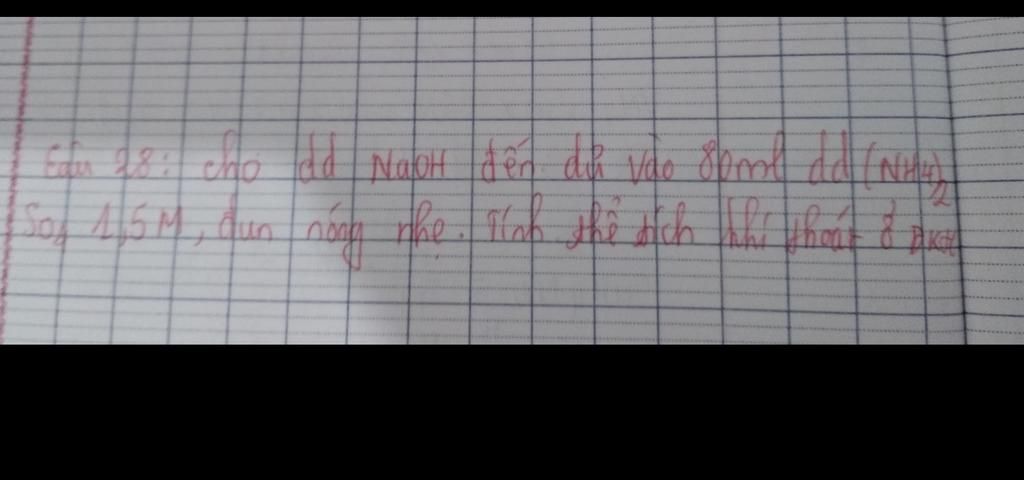 Câu 28: cho dd NaOH đến dư vào 80ml dd (NH4)2
SO4 1,5M, đun nóng nhẹ. Tính thể tích khí thoát ở ĐKC